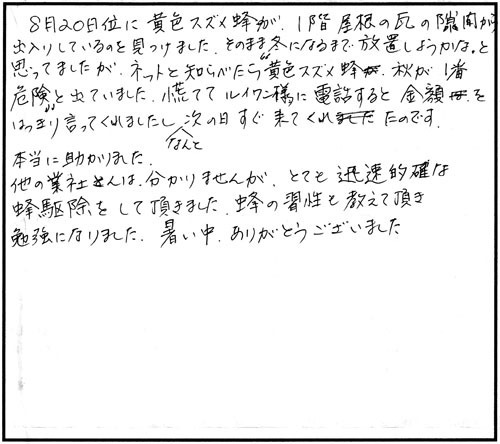 8月20日位に黄色スズメ蜂が、1階屋根の瓦の隙間から
出入りしているのを見つけました。そのまま冬になるまで放置しようかな。と
思ってましたが、ネットと知らべたら"黄色スズメ蜂 秋が1番
危険"と出ていました。慌ててルイワニ様に電話すると金額を
はっきり言ってくれましたし なんと次の日すぐ来てくれたのです。
本当に助かりました。
他の業社さんは、分かりませんが、とても迅速的確な
蜂駆除をして頂きました。蜂の習性も教えて頂き
勉強になりました。暑い中、ありがとうございました